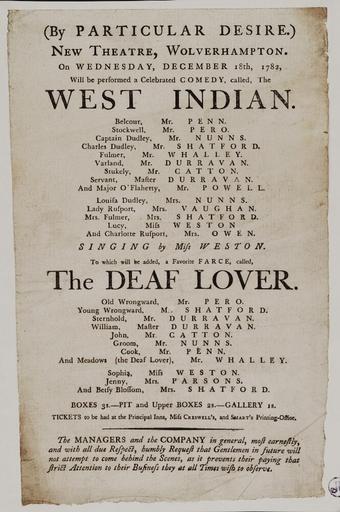 (By PARTICULAR DESIRE.)
NEW THEATRE, WOLVERHAMPTON.
On WEDNESDAY, DECEMBER 18th, 1782,
Will be performed a Celebrated COMEDY, called, The
WEST INDIAN.
Belcour, Mr. PENN.
Stockwell, Mr. PERO.
Captain Dudley, Mr. NUNNS.
Charles Dudley, Mr. SHATFORD.
Fulmer, Mr. WHALLEY.
Varland, Mr. DURRAVAN.
Stukely, Mr. CATTON.
Servant, Maſter DURRAVAN.
And Major O'Flaherty, Mr. POWELL.
Louiſa Dudley, Mrs. NUNNS.
Lady Ruſport, Mrs. VAUGHAN.
Mrs. Fulmer, Mrs. SHATFORD.
Lucy, Miſs WESTON
And Charlotte Ruſport, Mrs. OWEN.
SINGING by Miſs WESTON.
To which will be added, a Favorite FARCE, called,
The DEAF LOVER.
Old Wrongward, Mr. PERO.
Young Wrongward, M. SHATFORD.
Sternhold, Mr. DURRAVAN.
William, Maſter DURRAVAN.
John, Mr. CATTON.
Groom, Mr. NUNNS.
Cook, Mr. PENN.
And Meadows (the Deaf Lover), Mr. WHALLEY.
Sophia, Miſs WESTON.
Jenny, Mrs. PARSONS.
And Betſy Bloſſom, Mrs. SHATFORD.
BOXES 3s.—PIT and Upper BOXES 2s.—GALLERY 1s.
TICKETS to be had at the Principal Inns, Miſs CRESWELL's, and SMART's Printing-Office.
The MANAGERS and the COMPANY in general, moſt earneſtly,
and with all due Reſpect, humbly Requeſt that Gentlemen in future will
not attempt to come behind the Scenes, as it prevents their paying that
ſtrict Attention to their Buſineſs they at all Times wiſh to obſerve.